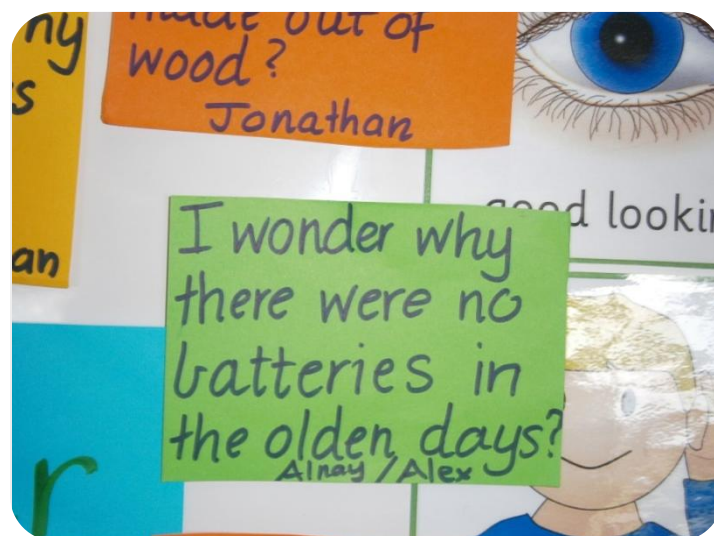 made out of
wood?
Jonathan
ny
s
an
good looki
I wonder why
there were no
batteries in
the olden days?
Alnay/Alex
r